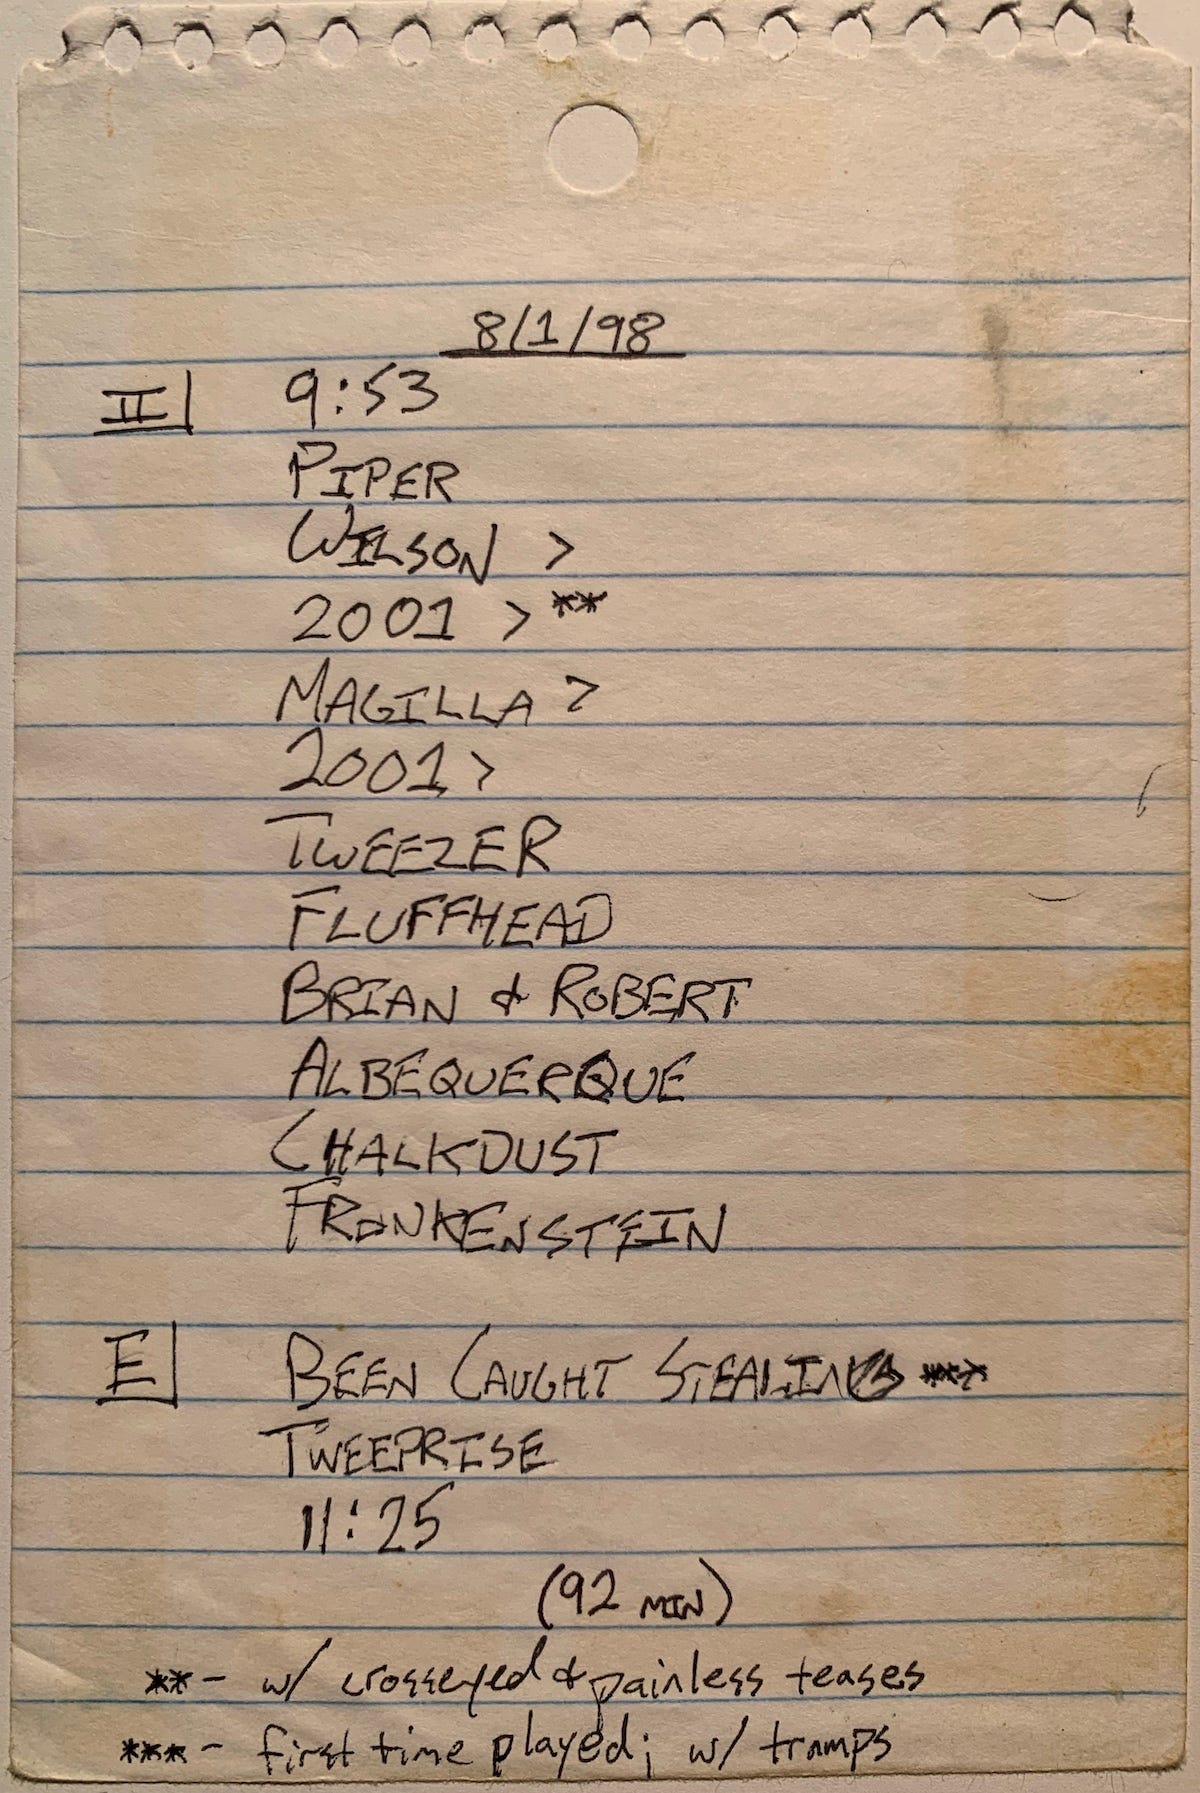 8/1/98
II 9:53
PIPER
WILSON >
2001 > **
MAGILLA >
2001 >
TWEEZER
FLUFFHEAD
BRIAN & ROBERT
ALBEQUERQUE
CHALKDUST
FRANKENSTEIN
E BEEN CAUGHT STEALING ***
TWEEPRISE
11:25
(92 MIN)
** - w/ crosseyed & painless teases
*** - first time played; w/ tramps